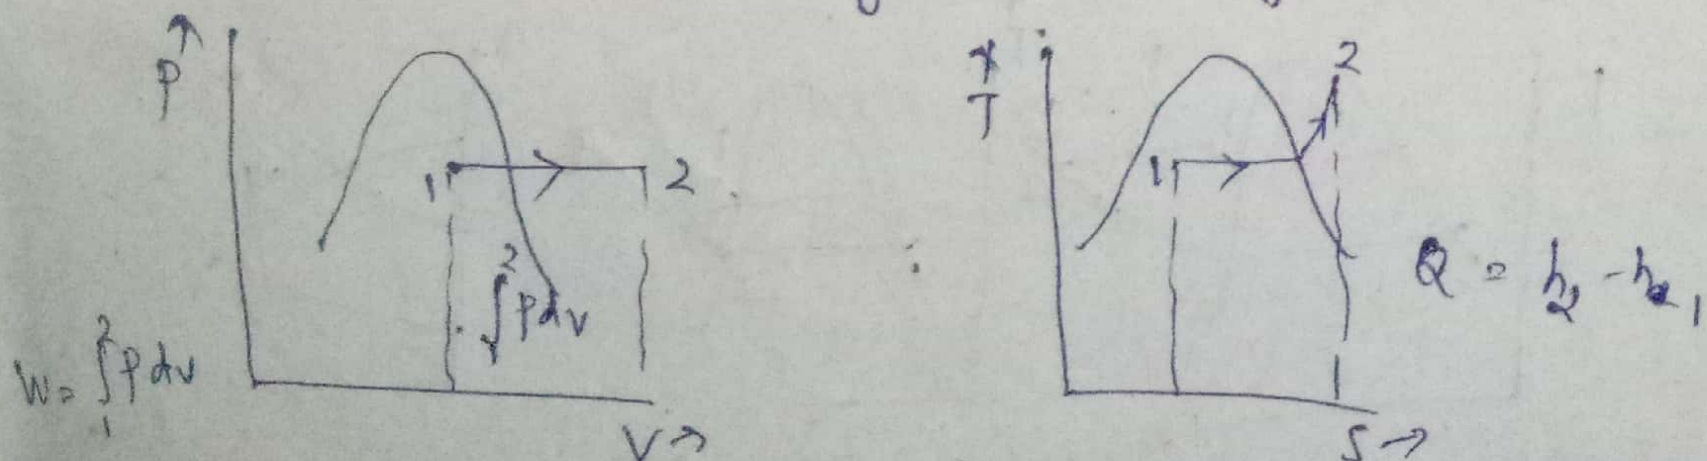 ↑
P
1 2
∫² P dv
W = ∫₁² P dv
V →
T
1 2
S →
Q = h₂ - h₁